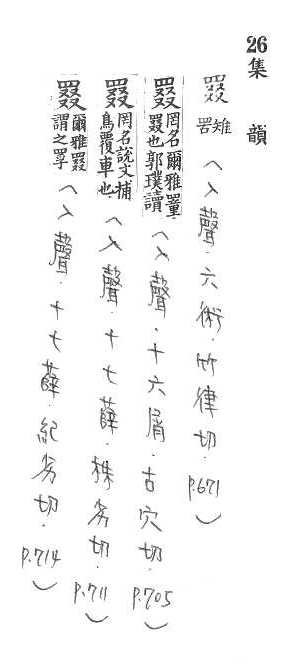 26集韻
罬 雉罟(入聲.六術.竹律切.p.671)
罬 罔名爾雅罿罬也郭璞讀(入聲.十六屑.古穴切.p.705)
罬 罔名說文捕鳥覆車也(入聲.十七薛.株劣切.p.711)
罬 爾雅罬謂之罦(入聲.十七薛.紀劣切.p.714)